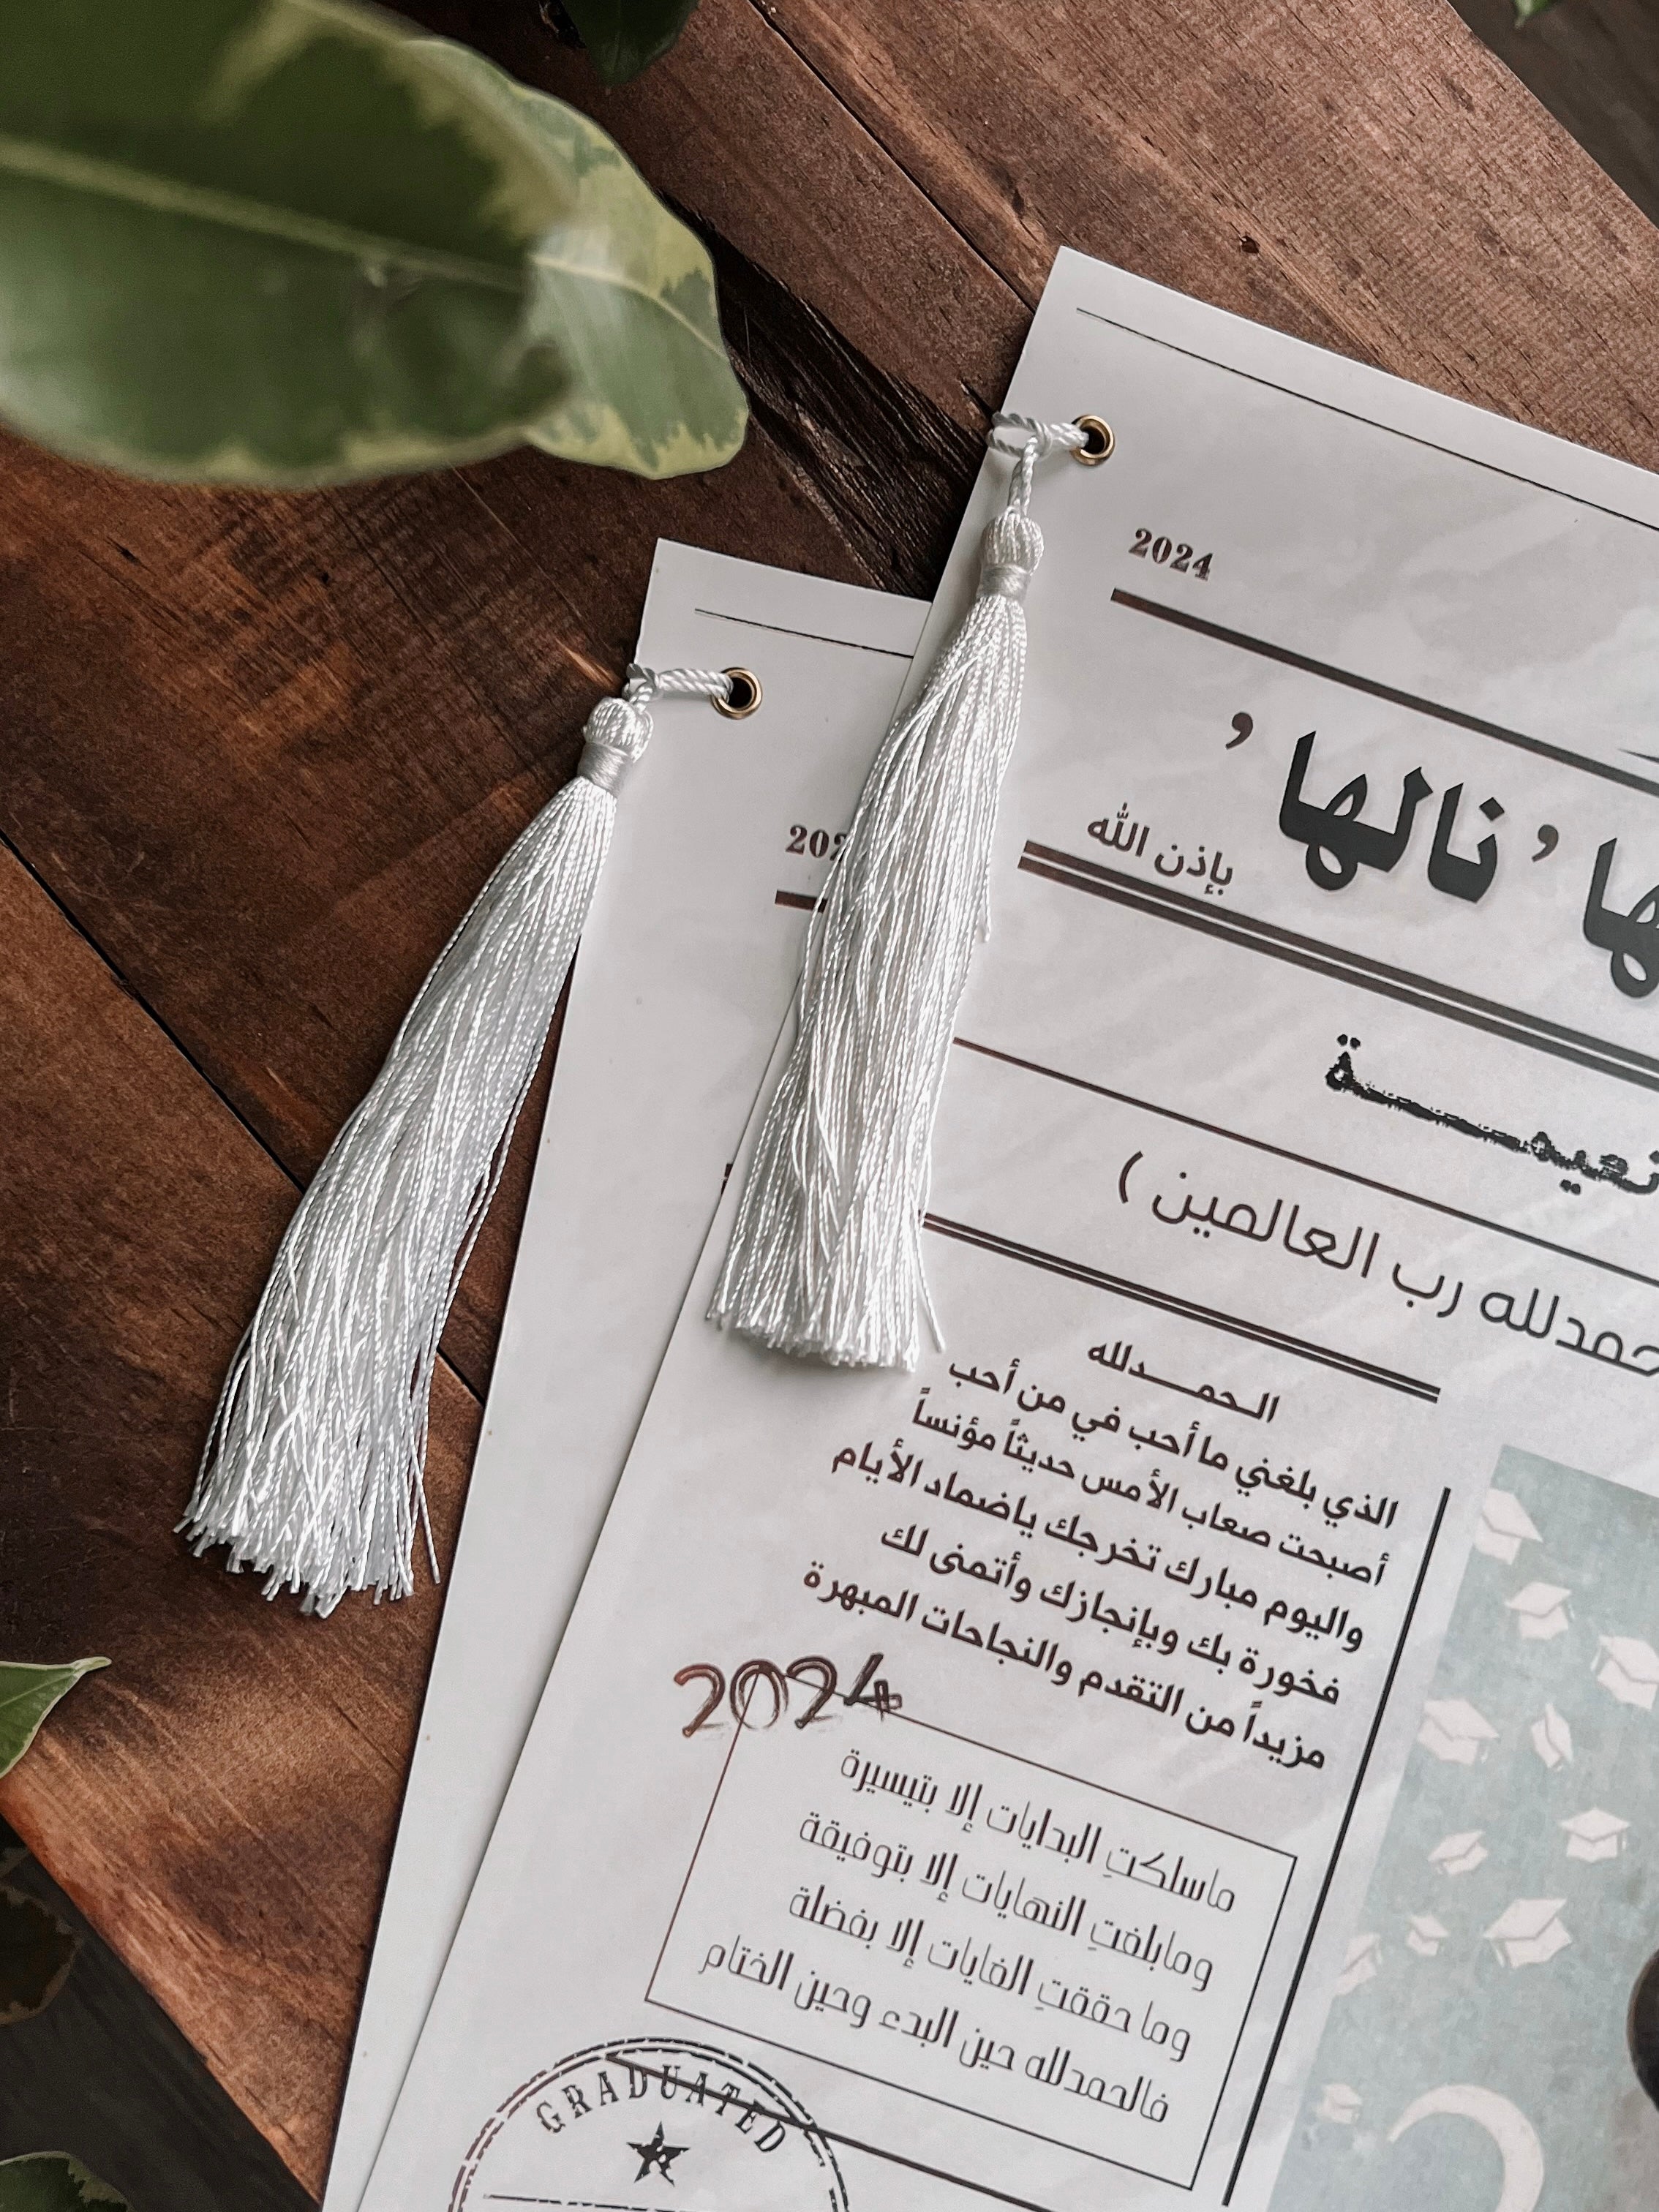 2024
202
ها ’ نالها ’
بإذن الله
نعيمـــــة
حمدلله رب العالمين )
الـحمـــدلله
الذي بلغني ما أحب في من أحب
أصبحت صعاب الأمس حديثاً مؤنساً
واليوم مبارك تخرجك ياضماد الأيام
فخورة بك وبإنجازك وأتمنى لك
مزيداً من التقدم والنجاحات المبهرة
2024
ماسلكتِ البدايات إلا بتيسيرة
ومابلغتِ النهايات إلا بتوفيقة
وما حققتِ الغايات إلا بفضلة
فالحمدلله حين البدء وحين الختام
GRADUATED